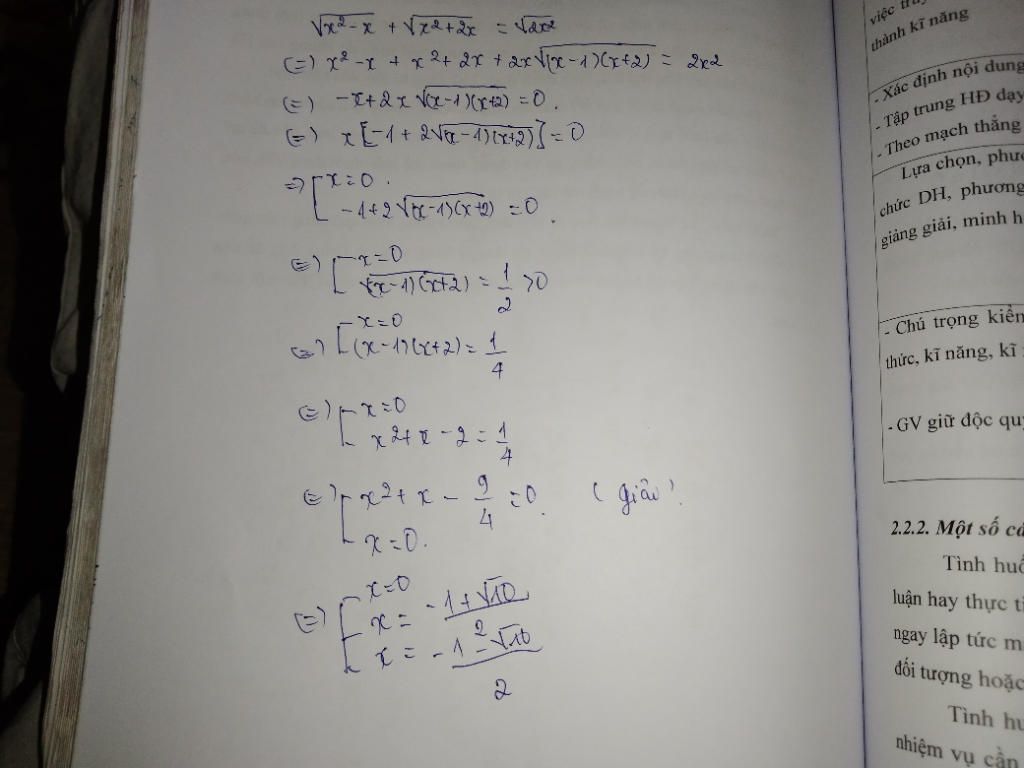 √x²-x + √x²+2x = √2x²
(=) x² - x + x² + 2x + 2x√(x-1)(x+2) = 2x²
(=) -x + 2x √(x-1)(x+2) = 0.
(=) x [-1 + 2√(x-1)(x+2)] = 0
=) [ x = 0.
-1 + 2√(x-1)(x+2) = 0.
(=) [ x = 0
√(x-1)(x+2) = 1/2 > 0
(=) [ x = 0
(x-1)(x+2) = 1/4
(=) [ x = 0
x² + x - 2 = 1/4
(=) [ x² + x - 9/4 = 0. (giải).
x = 0.
(=) [ x = 0
x = -1+√10/2
x = -1-√10/2
việc
thành kĩ năng
- Xác định nội dung
- Tập trung HĐ dạy
- Theo mạch thẳng
Lựa chọn, phươ
chức DH, phương
giảng giải, minh h
- Chú trọng kiến
thức, kĩ năng, kĩ
- GV giữ độc quy
2.2.2. Một số cá
Tình huố
luận hay thực ti
ngay lập tức m
đối tượng hoặc
Tình hu
nhiệm vụ cần